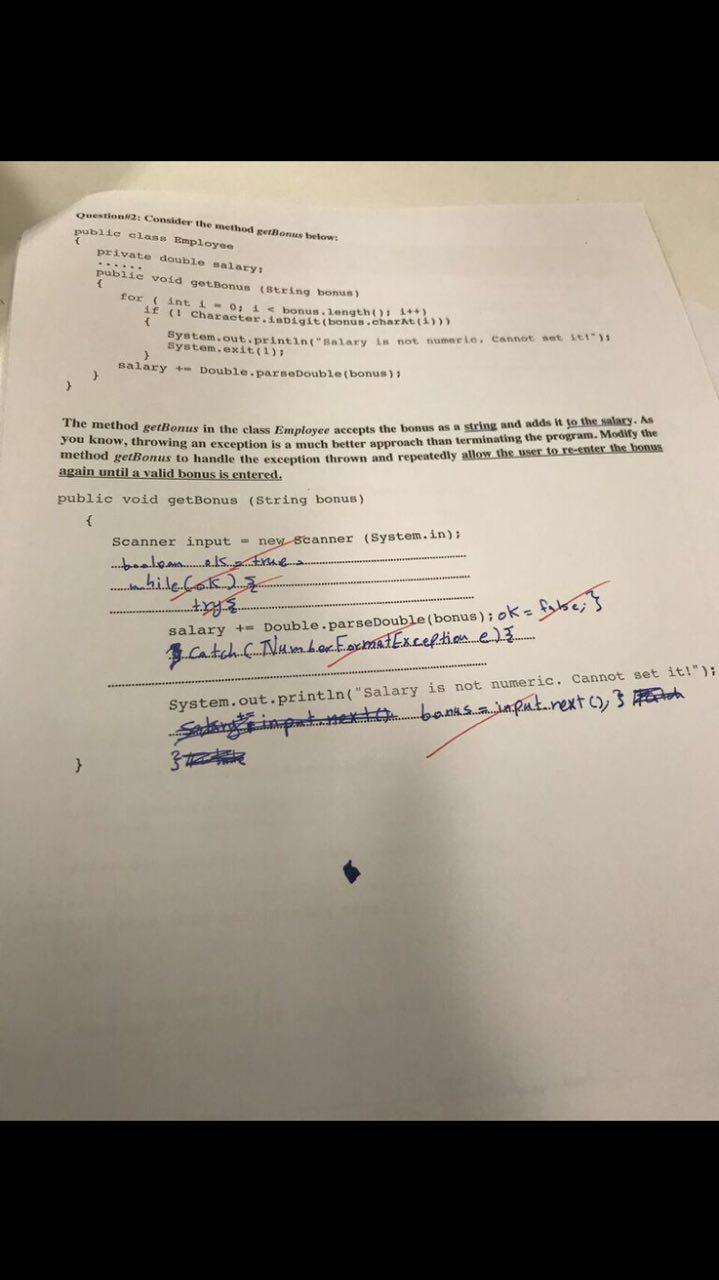 Question#2: Consider the method getBonus below:
public class Employee
{
private double salary;
......
public void getBonus (String bonus)
{
for ( int i = 0; i < bonus.length(); i++)
if (! Character.isDigit(bonus.charAt(i)))
{
System.out.println("Salary is not numeric. Cannot set it!");
System.exit(1);
}
salary += Double.parseDouble(bonus);
}
}
The method getBonus in the class Employee accepts the bonus as a string and adds it to the salary. As
you know, throwing an exception is a much better approach than terminating the program. Modify the
method getBonus to handle the exception thrown and repeatedly allow the user to re-enter the bonus
again until a valid bonus is entered.
public void getBonus (String bonus)
{
Scanner input = new Scanner (System.in);
boolean ok = true;
while(ok) {
try{
salary += Double.parseDouble(bonus); ok = false; }
catch ( NumberFormatException e) {
System.out.println("Salary is not numeric. Cannot set it!");
bonus = input.next(); }
}
}